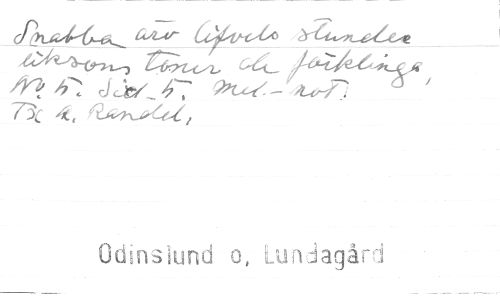 Snabba äro lifvets stunder
liksom toner de förklinga,
No. 5. Sid. 5. Mel.-not.
A. Randel,
Odinslund o, Lundagård